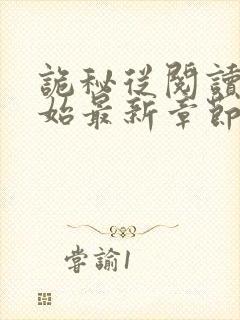 詭秘從閱讀
始最新章節
尝諭1